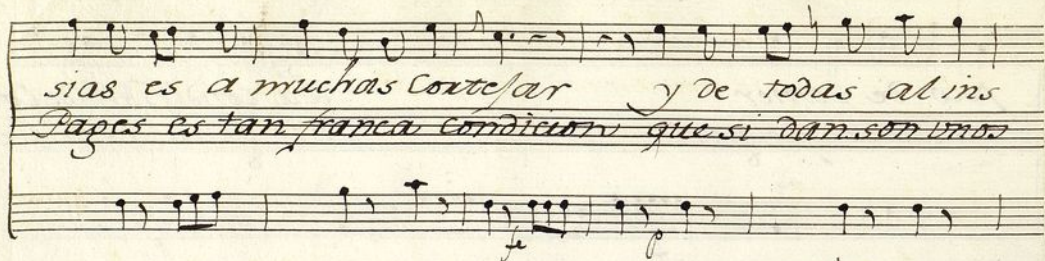 sias es a muchas Cortesar y de todas al ins
Pages es tan franca condicion que si dan son vnos
fe p